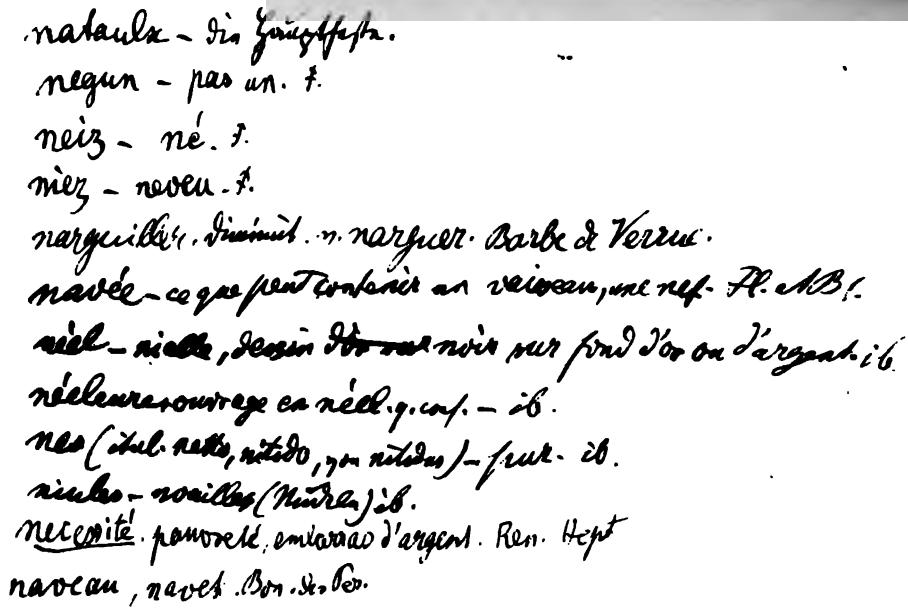 nataulx – die Hauptfeste.
negun – pas un. F.
neiz – né. F.
niez – neveu. F.
narguiller. diminut. v. narguer. Barbe de Verrue.
navée – ce que peut contenir un vaisseau, une nef – Fl. et Bl.
néel – nielle, dessin noir sur fond d'or ou d'argent. ib
néeleure. ouvrage en néel. q. conf. – ib.
nes (ital. netto, nitido, von nitidus) – pur – ib.
niules – noailles (Nudeln) ib.
necessité. pauvreté, embarras d'argent. Ren. Hept
naveau, navet. Bon. des Per.